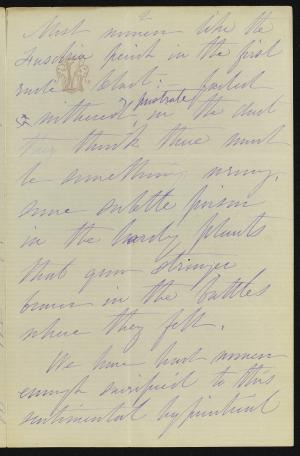 Most women like the
Fuschia perish in the first
rude blast: faded
& withered, prostrate, in the dust
they think there must
be something wrong,
some subtle poison
in the hardy plants
that grow stronger
braver in the battles
where they fell.
We have had women
enough sacrificed to this
sentimental hypocritical